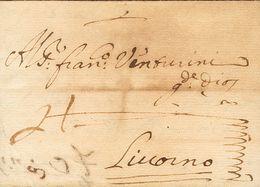 Al Sr. franco. Venturini
q. de Dios
4
Liuorno